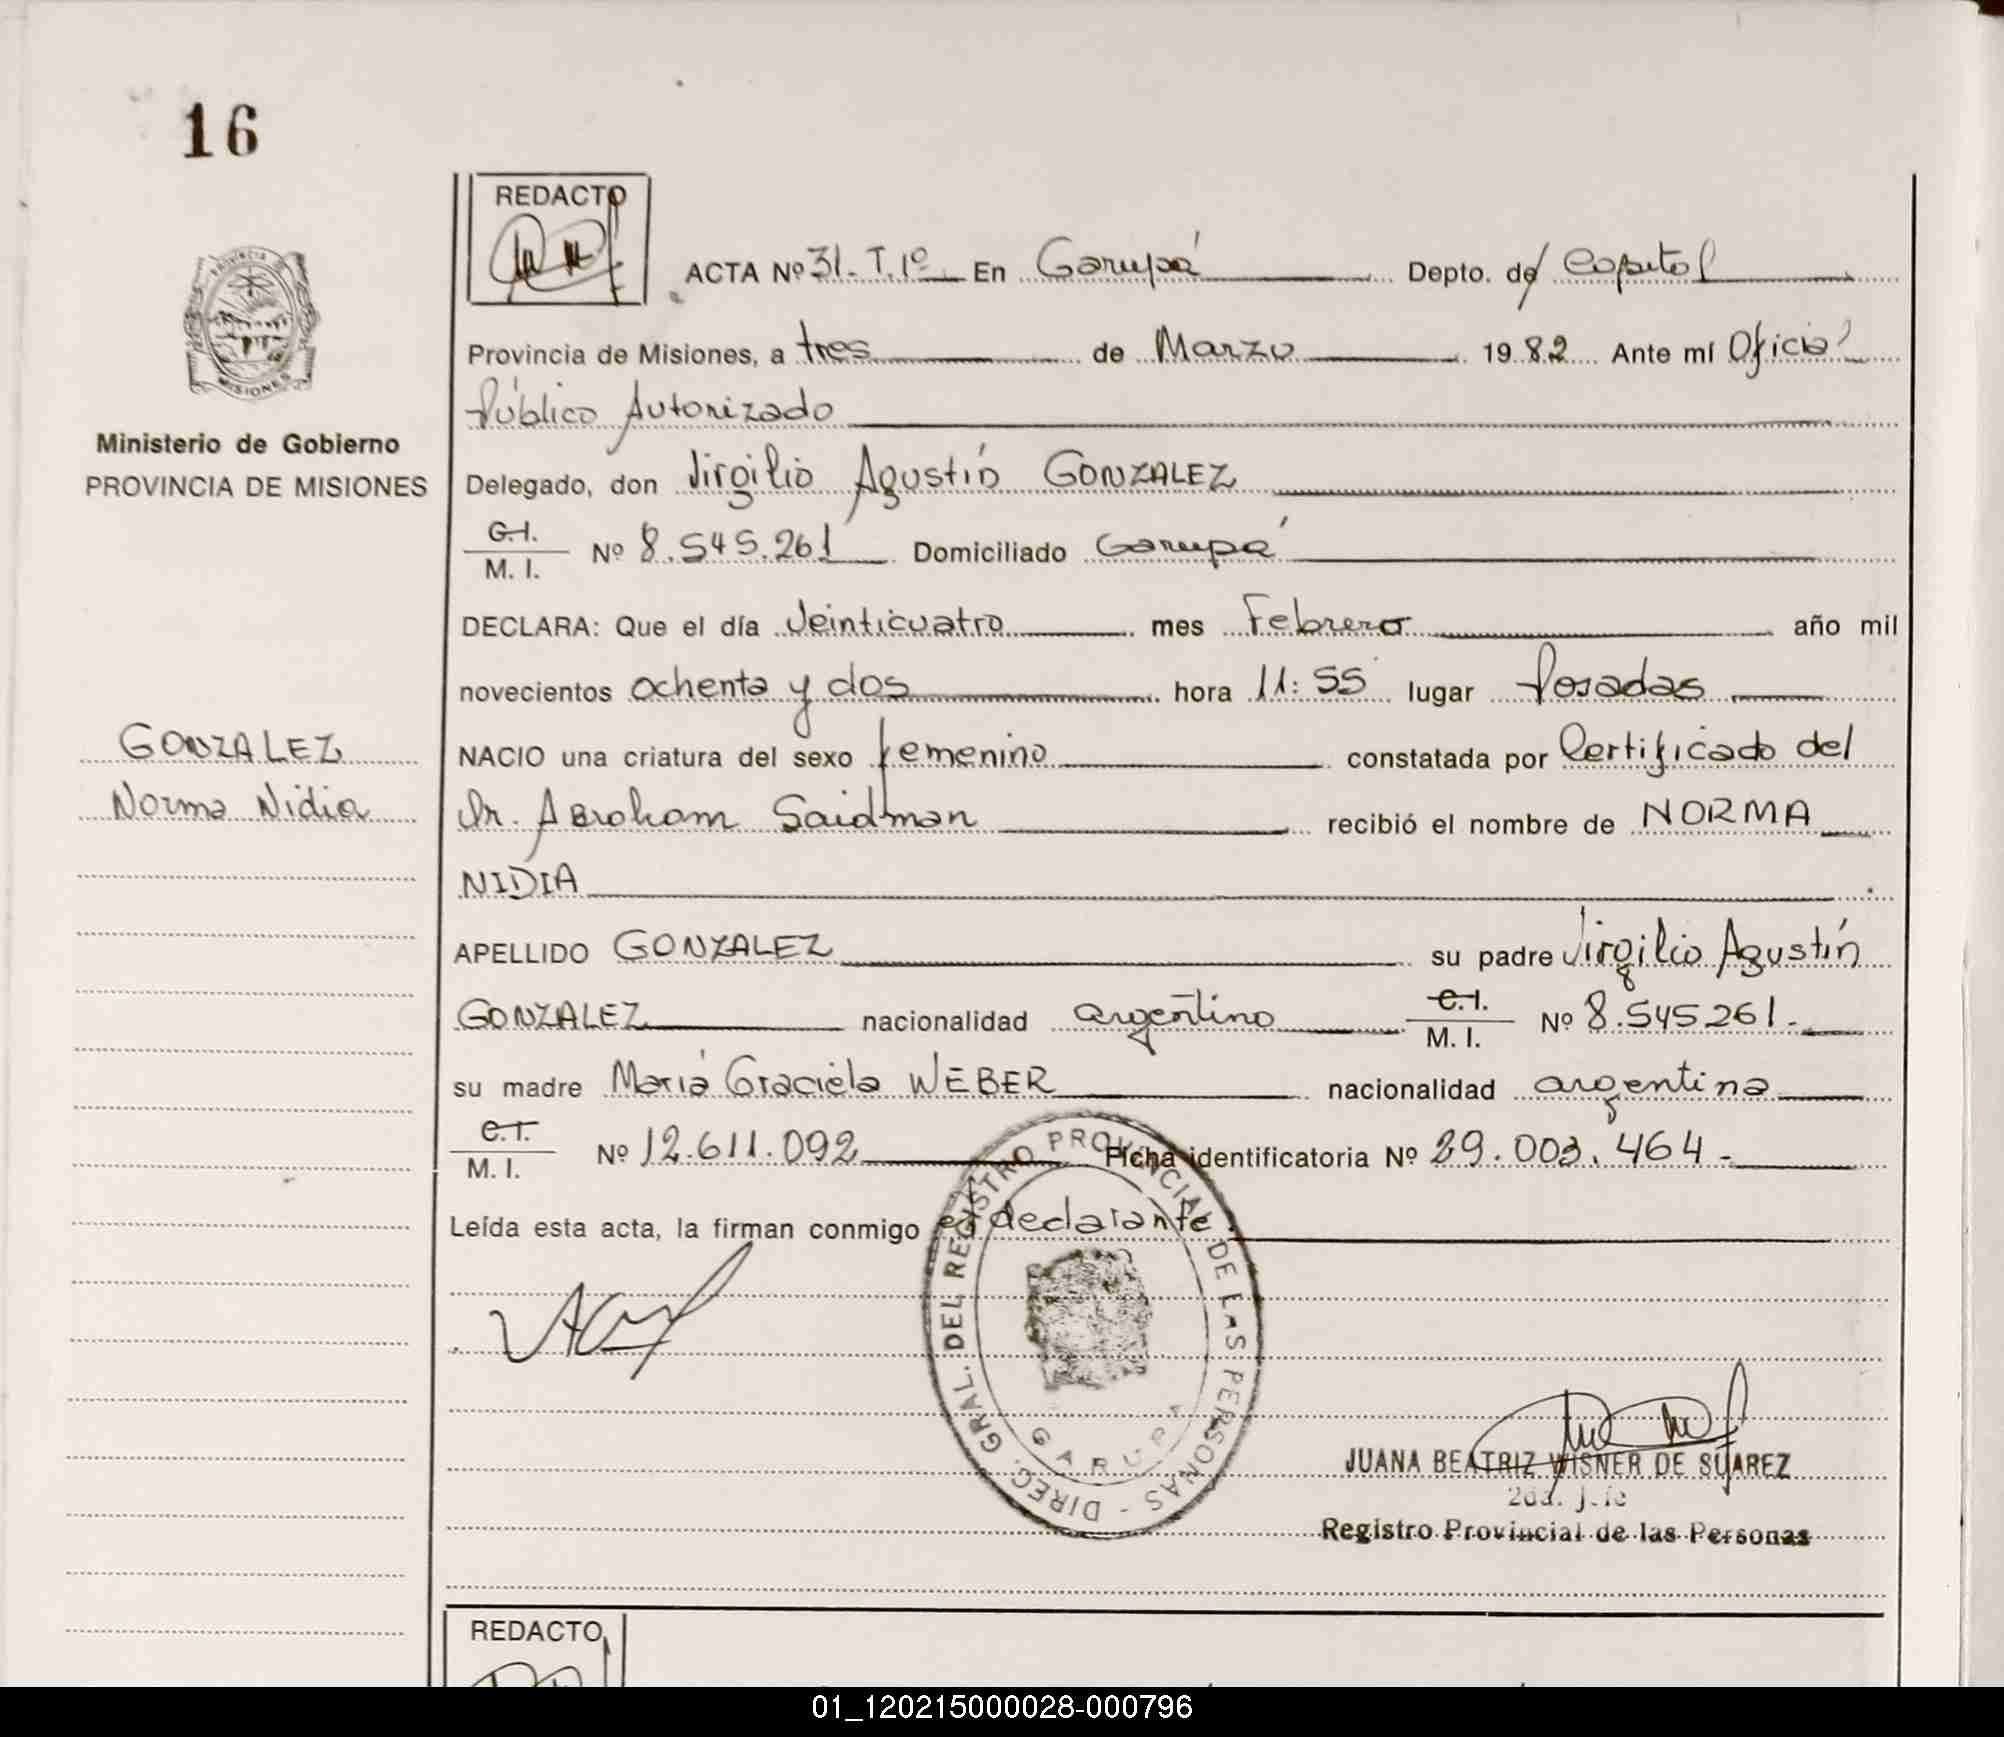 16
REDACTO
ACTA Nº 31. T. 1º En Garupá Depto. de Capital
Provincia de Misiones, a tres de Marzo 1982 Ante mí Oficial
Público Autorizado
Ministerio de Gobierno
PROVINCIA DE MISIONES
Delegado, don Virgilio Agustín GONZALEZ
C.I.
M. I. Nº 8.545.261 Domiciliado Garupá
DECLARA: Que el día Veinticuatro mes Febrero año mil
novecientos ochenta y dos hora 11:55 lugar Posadas
GONZALEZ
Norma Nidia
NACIO una criatura del sexo femenino constatada por Certificado del
Dr. Abraham Saidman recibió el nombre de NORMA
NIDIA
APELLIDO GONZALEZ su padre Virgilio Agustín
GONZALEZ nacionalidad argentino C.I. M. I. Nº 8.545.261.
su madre María Graciela WEBER nacionalidad argentina
C.I.
M. I. Nº 12.611.092 Ficha identificatoria Nº 29.003.464.-
Leída esta acta, la firman conmigo el declarante.
DIREC. GRAL. DEL REGISTRO PROVINCIAL DE LAS PERSONAS -
GARUPA
JUANA BEATRIZ WISNER DE SUAREZ
2da. Jefe
Registro Provincial de las Personas
REDACTO
01_120215000028-000796